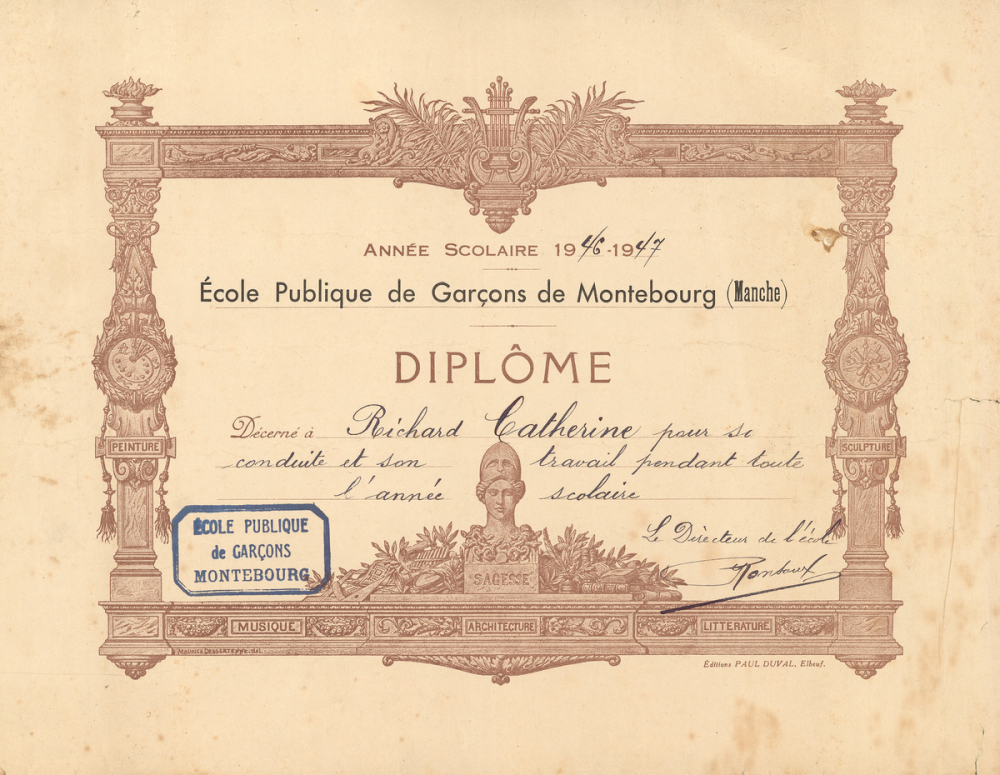 ANNÉE SCOLAIRE 1946-1947
École Publique de Garçons de Montebourg (Manche)
DIPLÔME
Décerné à Richard Catherine pour sa
conduite et son travail pendant toute
l'année scolaire
PEINTURE
SCULPTURE
ÉCOLE PUBLIQUE
de GARÇONS
MONTEBOURG
Le Directeur de l'école
SAGESSE
MUSIQUE
ARCHITECTURE
LITTÉRATURE
MAURICE DESSERTENNE
Éditions PAUL DUVAL, Elbeuf.